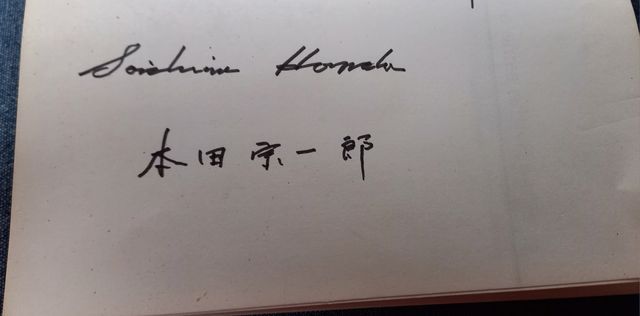 Soichiro Honda
本田宗一郎